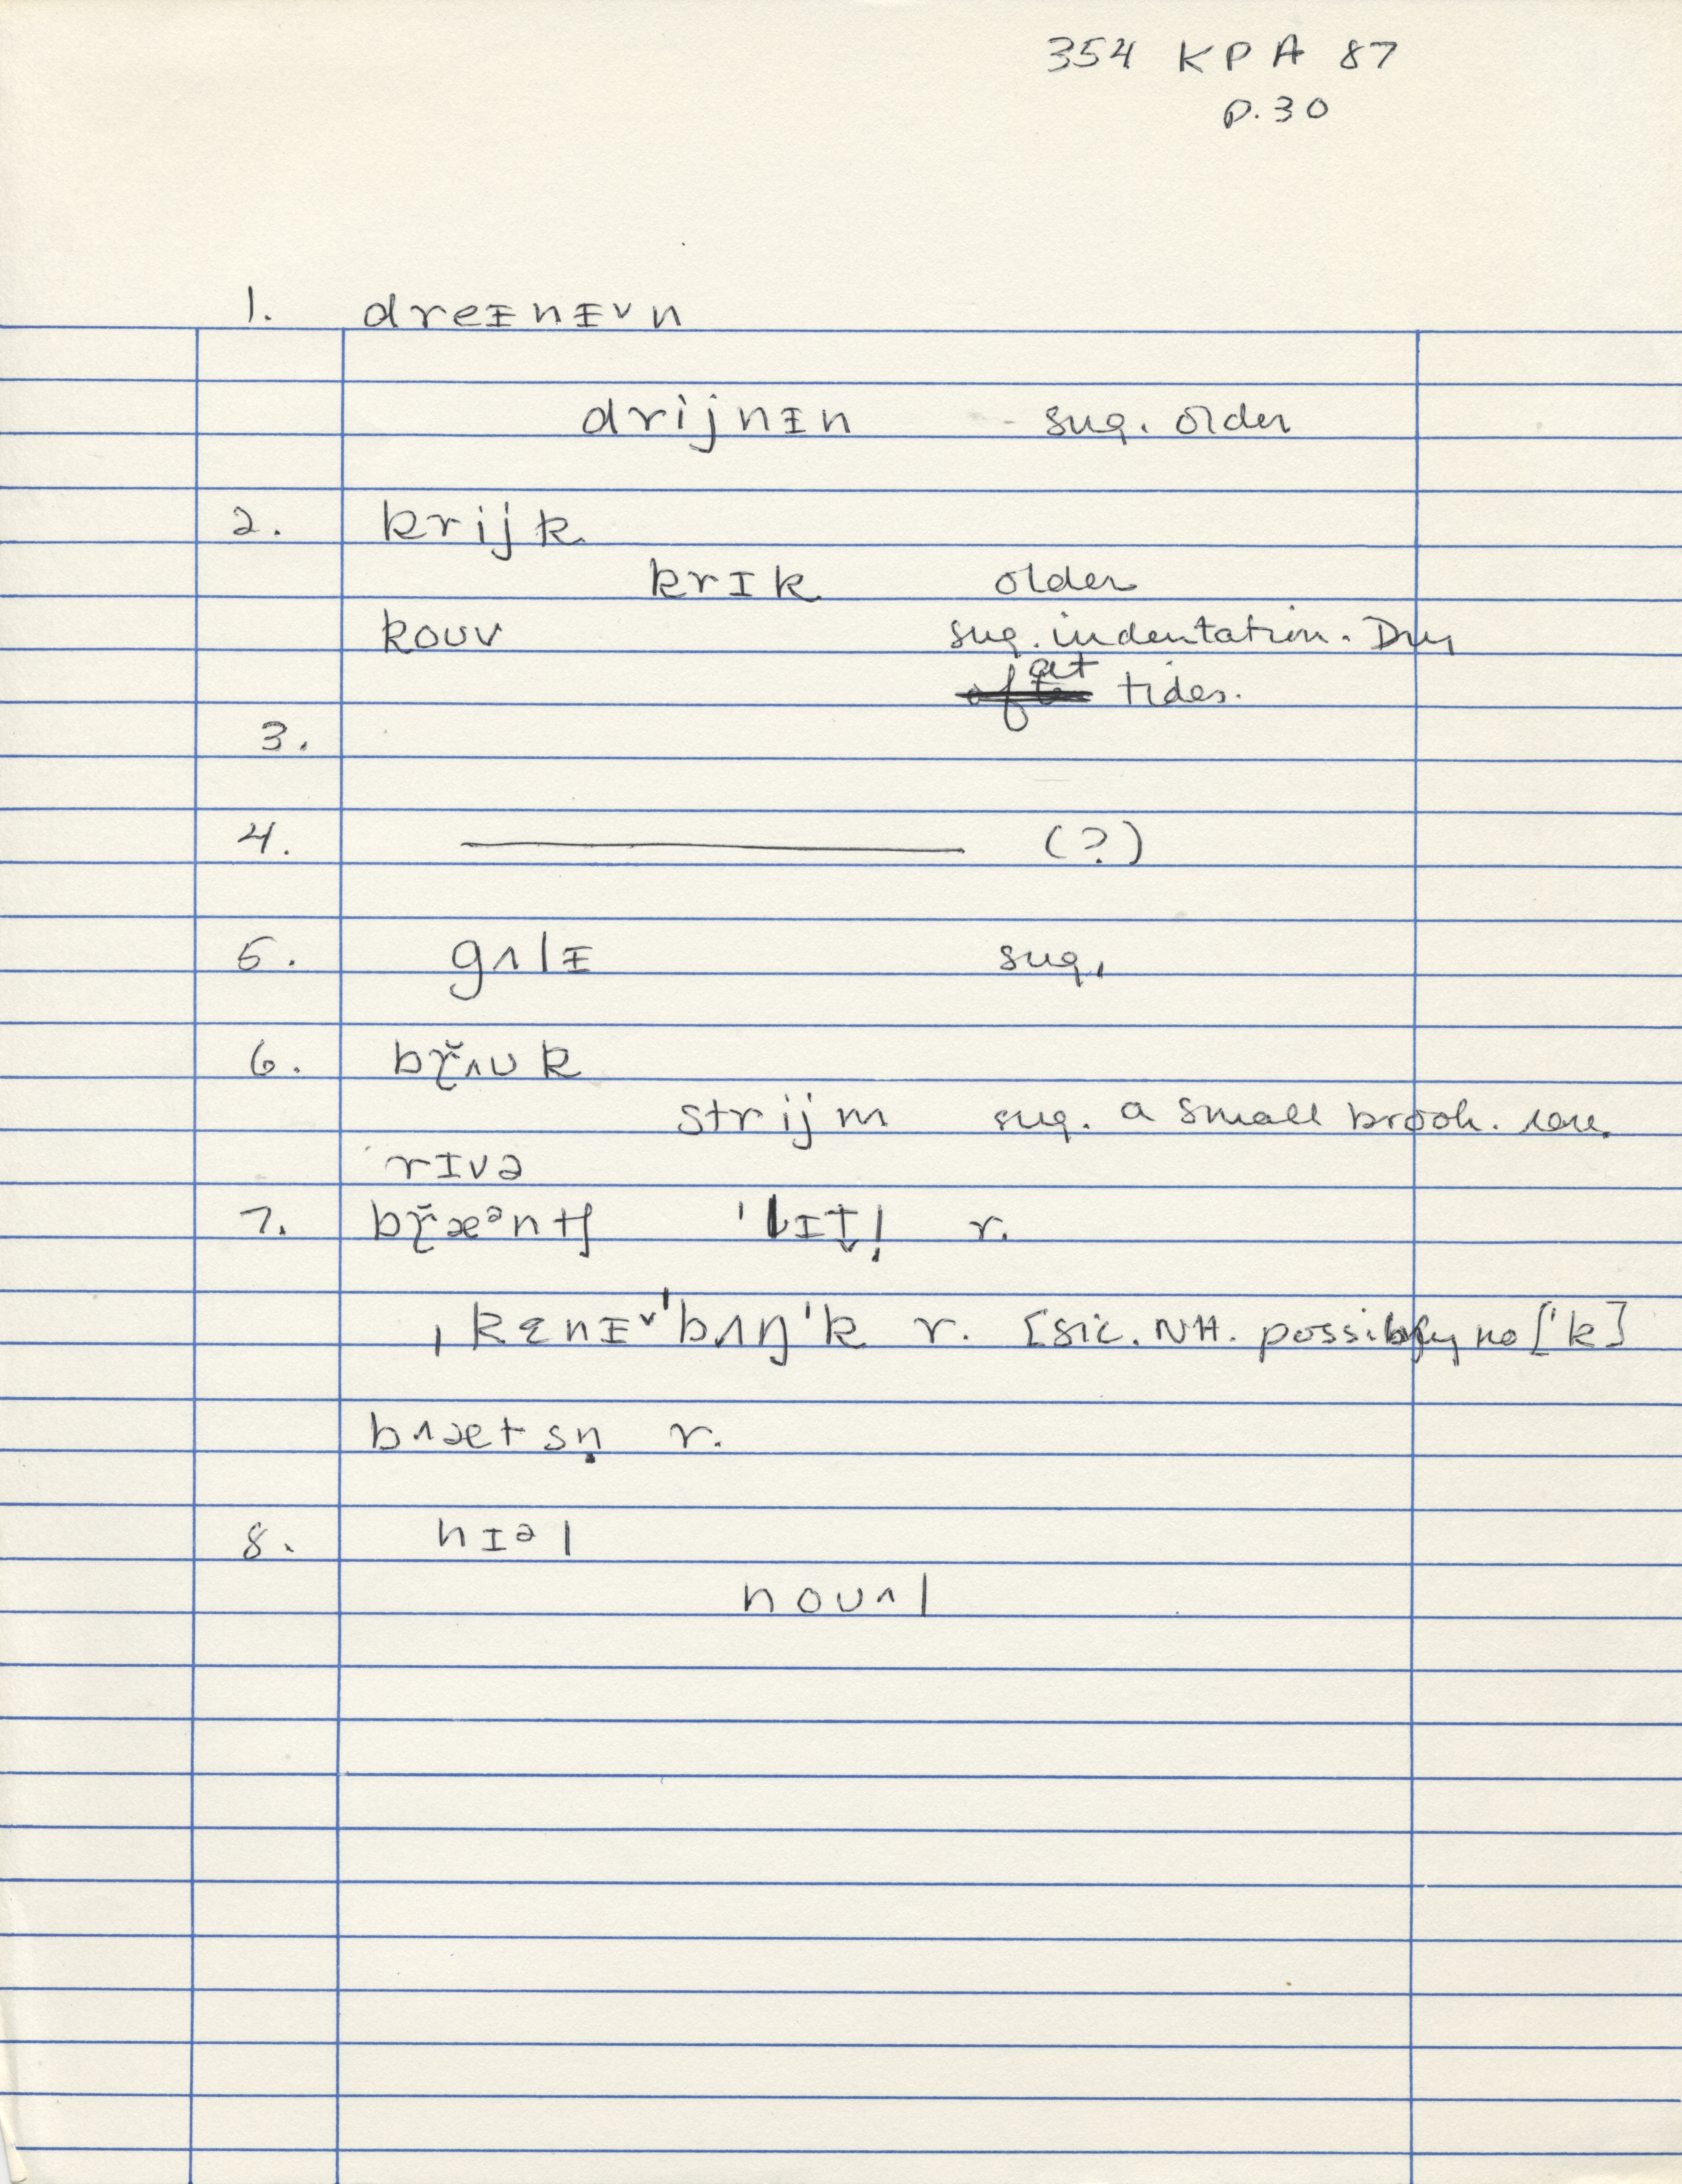 354 KPA 87
p.30
1. dreᵻnᵻ˅n
drijnᵻn sug. older
2. krijk
krɪk older
kouv sug. indentation. Dry
at tides.
3.
4. ——— (?)
5. gʌlᵻ sug.
6. bɽ̆ʌuk
strijm sug. a small brook. rare.
rɪvə
7. bɽ̆æᵊntʃ 'lɪt̬l̩ r.
ˌkɛnᵻ˅'bʌŋ'k r. [sic. NH. possibly no ['k]
bʌætsn̩ r.
8. nɪəl
nouʌl